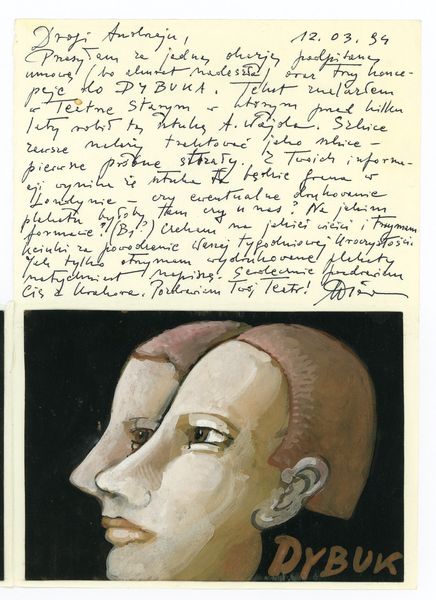 Drogi Andrzeju, 12.03.94
Przesyłam za jednej okazji podpisaną
umowę (bo akurat nadeszła) oraz trzy konce-
pcje do DYBUKA. Tekst znalazłem
w Teatrze Starym w którym przed kilku
laty robił tę sztukę A. Wajda. Szkice
zawsze należy traktować jako szkice -
pierwsze próbne strzały. Z Twoich informa-
cji wynika że sztuka ta będzie grana w
Londynie - czy ewentualne drukowanie
plakatu byłoby tam czy u nas? Na jakim
formacie? (B1?) Czekam na jakieś wieści i trzymam
kciuki za powodzenie Waszej tygodniowej Uroczystości
Jak tylko otrzymam wydrukowane plakaty
natychmiast napiszę. Serdecznie pozdrawiam
Cię z Krakowa. Pozdrawiam Twój Teatr!
DYBUK